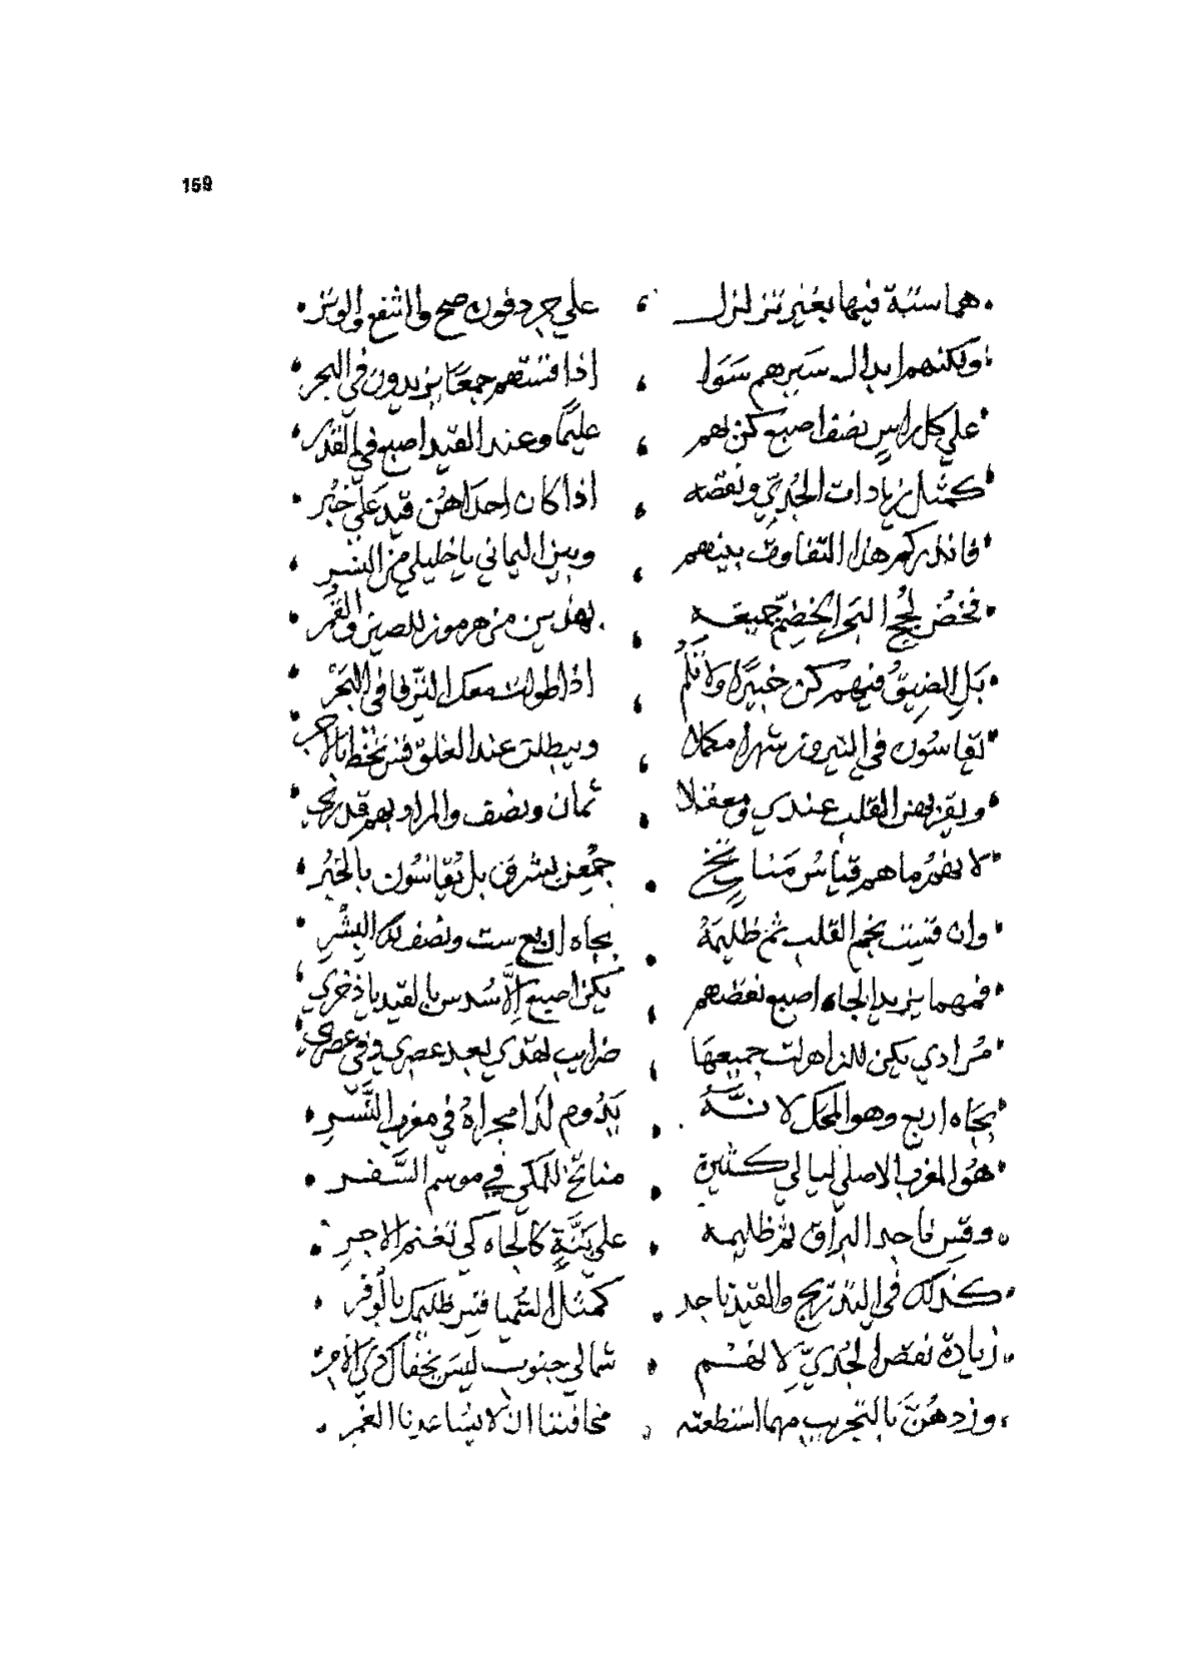 159
هما ستة فيها بغير تزلزل ، علي جرد فون صح والشفع والوتر
ولكنهم ابدال سيرهم سوا ، اذا قستهم جمعًا يزيدون في البحر
علي كل راسٍ نصف اصبع كن لهم ، عليمًا وعند القيد اصبع في القدر
كمثال زيادات الجُديّ ونقصه ، اذا كان احداهُن قيد علي خُبر
فانذركم هذا التفاوت بينهم ، وبين اليماني يا خليلي من النسر
فخُض لُجج البحر الخضمّ جميعه ، بهذين من هرموز للصين والقُمر
بَلِ الضيقُ فيهم كن خبيرًا ولا تَنُم ، اذا طولت معك النتّرفا في البَحر
تقاسُون في النيروز شهرا مكملا ، ويبطلن عند الغلق
ويقربهن القلب عندي ومعقلا ، ثمان ونصف والمراد بهم قدري
لا نفرُ ما هم قياسُ مَناتخ ، جمُعن بشرقي بل تُقاسُون بالخُبر
وان قست نجم القلب ثم ظليمَهُ ، بجاه اربع ست ونصف لك البِشْرِ
فمهما يزيد الجاه اصبع نقصهم ، يكن اصبع اِلاَّ سُدس بالقيد يا ذخري
مُرادي يكن للذاهلت جميعهَا ، ضرايب لهندي بعد عصري وفي عصري
بجَاه اربع وهو المحل لانَّهُ ، يَدُوم لذا مجراهُ في مغرب النَّسرِ
هُو المغرب الاصلي ليالي كثيرة ، مناتخ للمكّي في موسم السَّفر
وقس فاجد البراق ثم ظليمه ، علي بَيَّنَةٍ كالجاه كي تغنم الاجرِ
كذلك في التدريج والقيد فاجد ، كمثال قس ظليمك بالوفر
زيادة نقص الجُديّ لا نفسم ، شمالي جنوب ليس يخفاك ذي الامر
وزدهُنَّ بالتجريب مهما استطعته ، مخافتنا ان لا يساعدنا العُمر